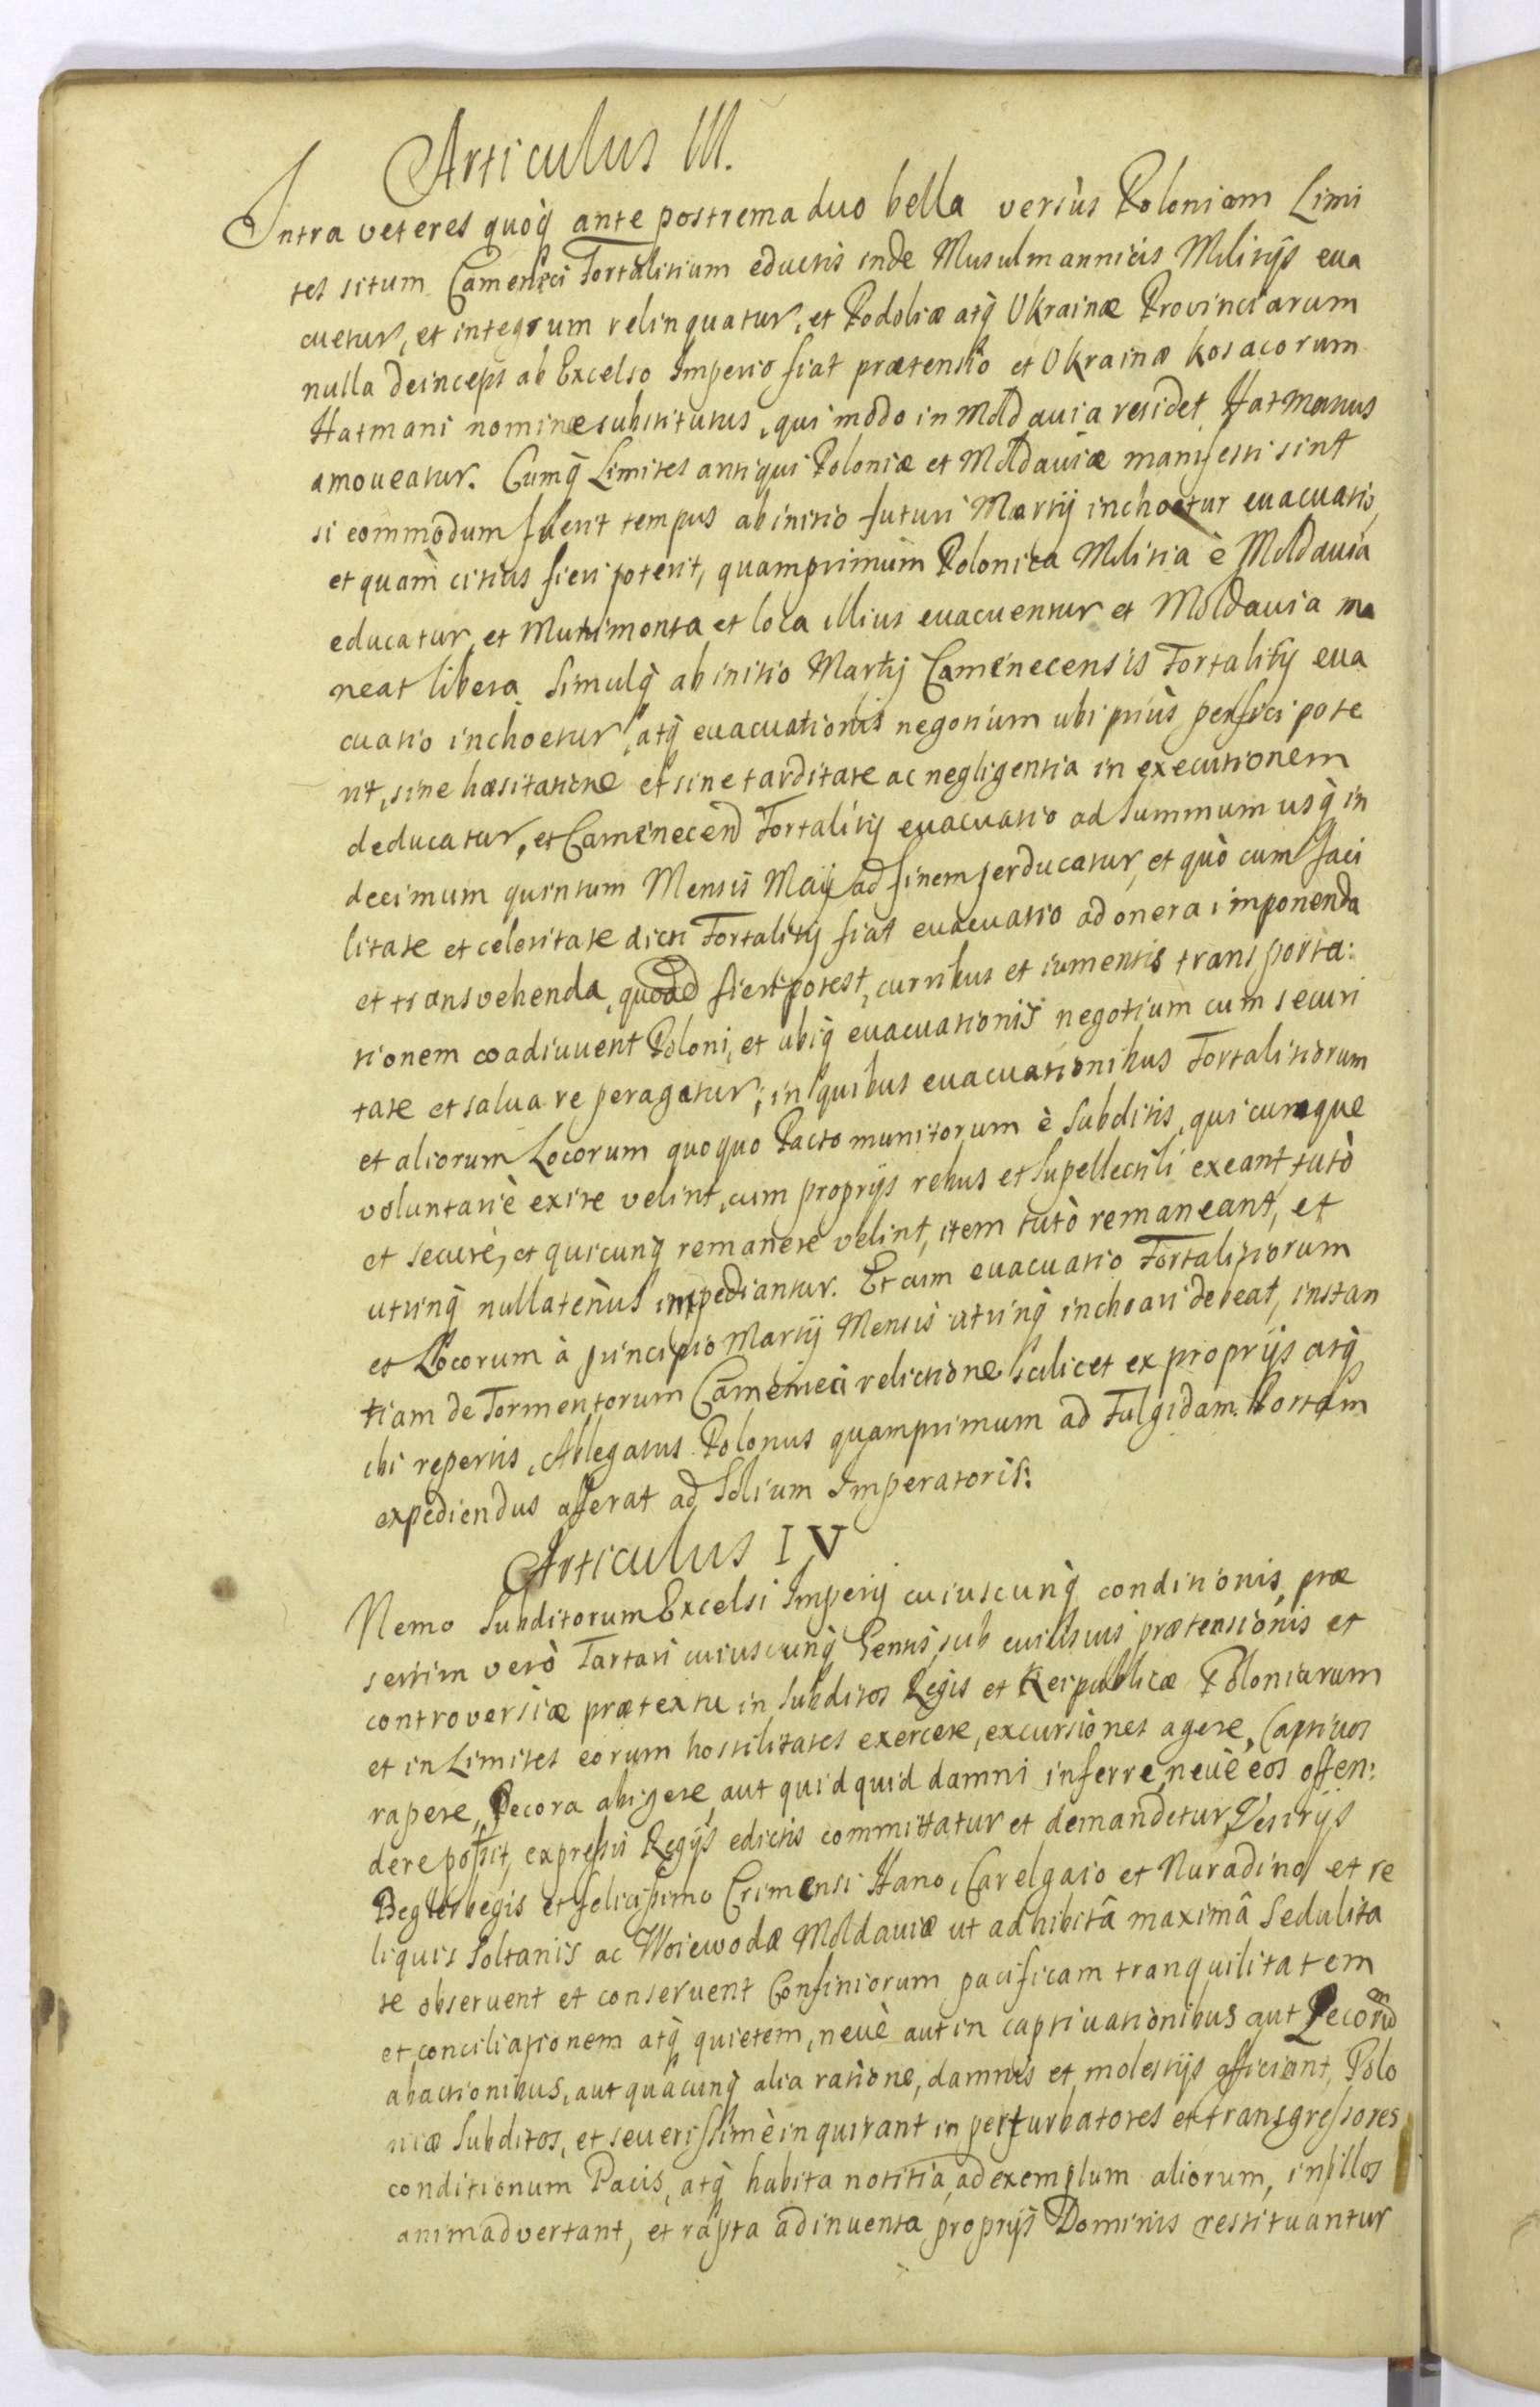 Articulus III.
Intra veteres quoq̀ ante postrema duo bella versùs Poloniam Limi
tes situm Camenéci Fortalitium eductis inde Musulmannicis Militijs eua
cuetur, et integrum relinquatur, et Podoliæ atq̀ Ukrainæ Provinciarum
nulla deinceps ab Excelso Imperio fiat prætensio et Ukrainæ Kosacorum
Hatmani nomine substitutus, qui modo in Moldauia residet Hatmanus
amoueatur. Cumq̀ Limites antiqui Poloniæ et Moldauiæ manifesti sint
si commodum fuerit tempus ab initio futuri Martij inchoetur euacuatio,
et quàm citius fieri poterit, quamprimùm Polonica Militia è Moldauia
educatur, et Munimenta et loca illius euacuentur et Moldauia ma
neat libera simulq̀ ab initio Martij Camenecensis Fortalitij eua
cuatio inchoetur, atq̀ euacuationis negotium ubi priùs perfici pote
rit, sine hæsitatione et sine tarditate ac negligentia in executionem
deducatur, et Camenecen͠ Fortalitij euacuatio ad summum usq̀ in
decimum quintum Mensis Maij ad finem perducatur, et quò cum faci
litate et celeritate dicti Fortalitij fiat euacuatio ad onera imponenda
et transvehenda, quoad fieri potest, curribus et iumentis transporta:
tionem coadiuuent Poloni, et ubiq̀ euacuationis negotium cum securi
tate et salua re peragatur; in quibus euacuationibus Fortalitiorum
et aliorum Locorum quoquo Pacto munitorum è Subditis, quicumque
voluntariè exire velint, cum proprijs rebus et supellectili exeant, tutò
et securè, et quicunq̀ remanere velint, item tutò remaneant, et
utrinq̀ nullatenùs impediantur. Et cum euacuatio Fortalitiorum
et Locorum à principio Martij Mensis utrinq̀ inchoari debeat, instan
tiam de Tormentorum Cameneci relictione scilicet ex proprijs atq̀
ibi repertis, Ablegatus Polonus quamprimum ad Fulgidam Portam
expediendus afferat ad Solium Imperatoris:
Articulus IV
Nemo Subditorum Excelsi Imperij cuiuscunq̀ conditionis, præ
sertim verò Tartari cuiuscunq̀ Gentis, sub cuiusuis prætensionis et
controversiæ prætextu in Subditos Regis et Reipublicæ Poloniarum
et in Limites eorum hostilitates exercere, excursiones agere, Captivos
rapere, Pecora abigere, aut quidquid damni inferre, neuè eos offen:
dere possit, expressis Regijs edictis committatur et demandetur Vesirijs
Beglerbegis et felicissimo Crimensi Hano, Cavelgaio et Nuradino et re
liquis Soltanis ac Woiewodæ Moldauiæ ut adhibitâ maximâ Sedulita
te obseruent et conseruent Confiniorum pacificam tranquilitatem
et conciliationem atq̀ quietem, neuè aut in captiuationibus aut Pecorum
abactionibus, aut quacunq̀ alia ratione, damnis et molestijs afficiant, Polo
niæ Subditos, et seuerissimè inquirant in perturbatores et transgressores
conditionum Pacis, atq̀ habita notitia, ad exemplum aliorum, in illos
animadvertant, et rapta adinuenta proprijs Dominis restituantur